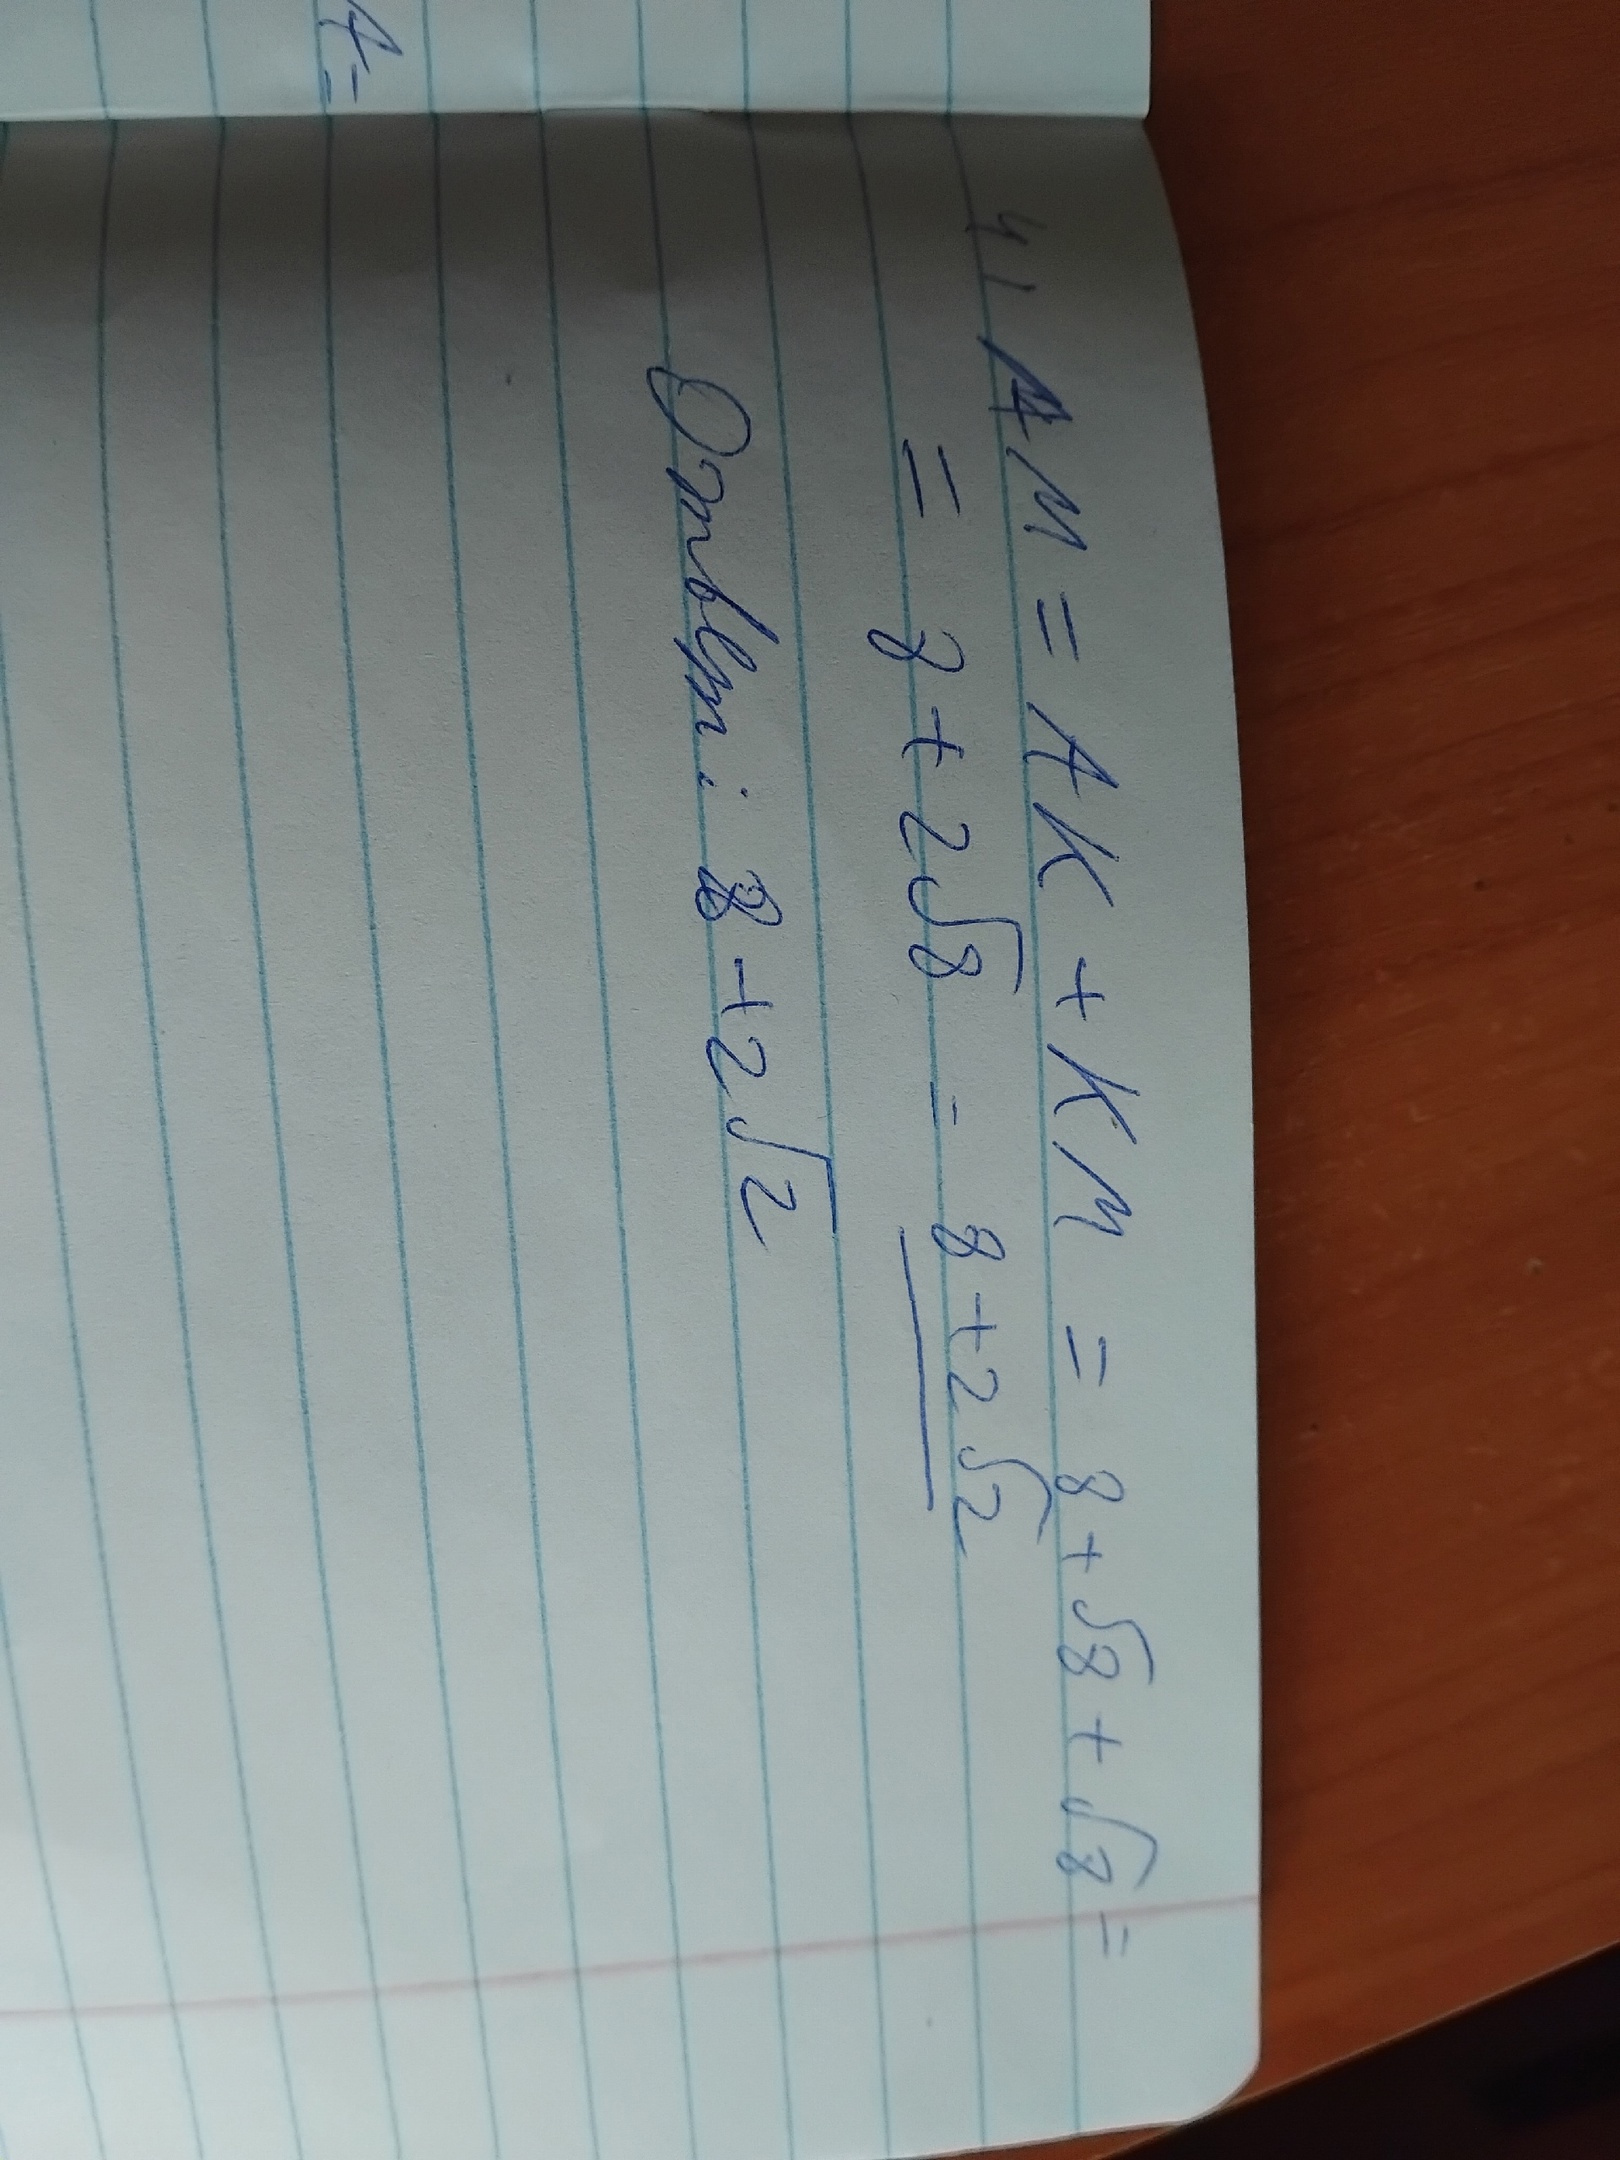 4, AM = AK + KM = 8 + √8 + √8 =
= 8 + 2√8 = 8 + 2√2
Ответ: 8 + 2√2
A =